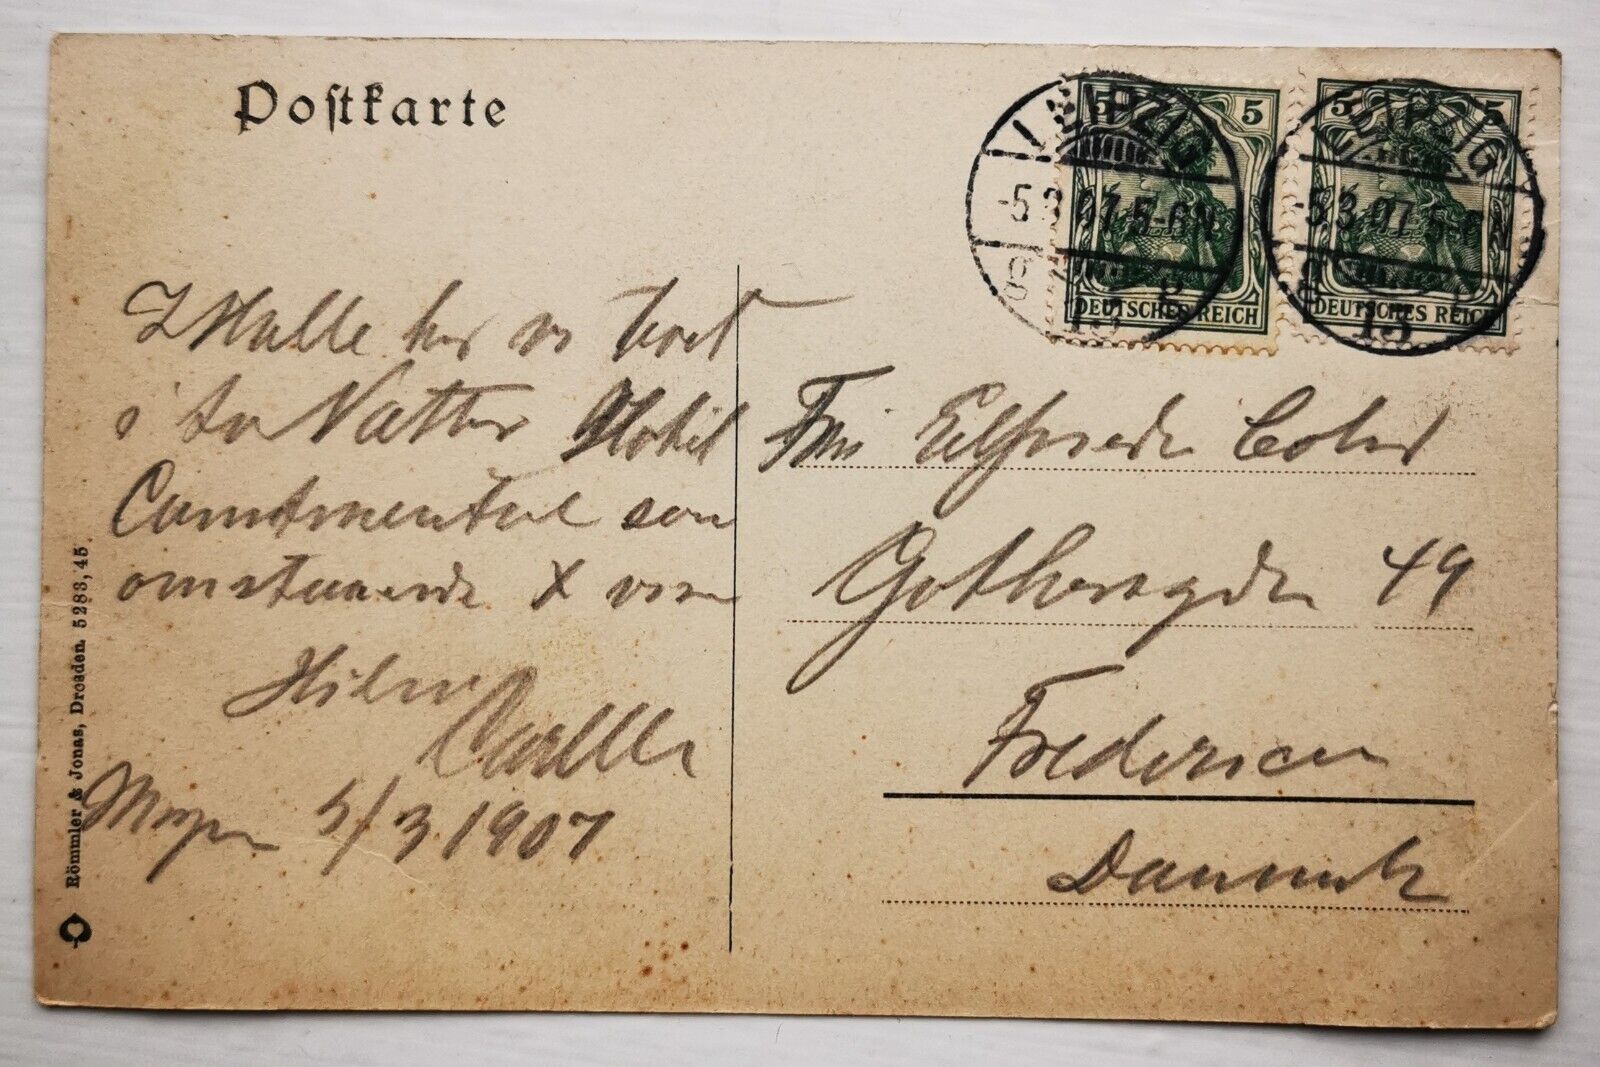 Postkarte
LEIPZIG
-5.3.07.5-6N
8
13
5
DEUTSCHES REICH
LEIPZIG
-5.3.07.5-6N
8
13
5 5
DEUTSCHES REICH
I Halle har vi boet
i to Natter Hotel
Continental som
omstaaende X viser
Hilsen
Carl
5/3 1907
Elfriede
Gothersgade 49
Fredericia
Danmark
Römmler & Jonas, Dresden. 5283,45.